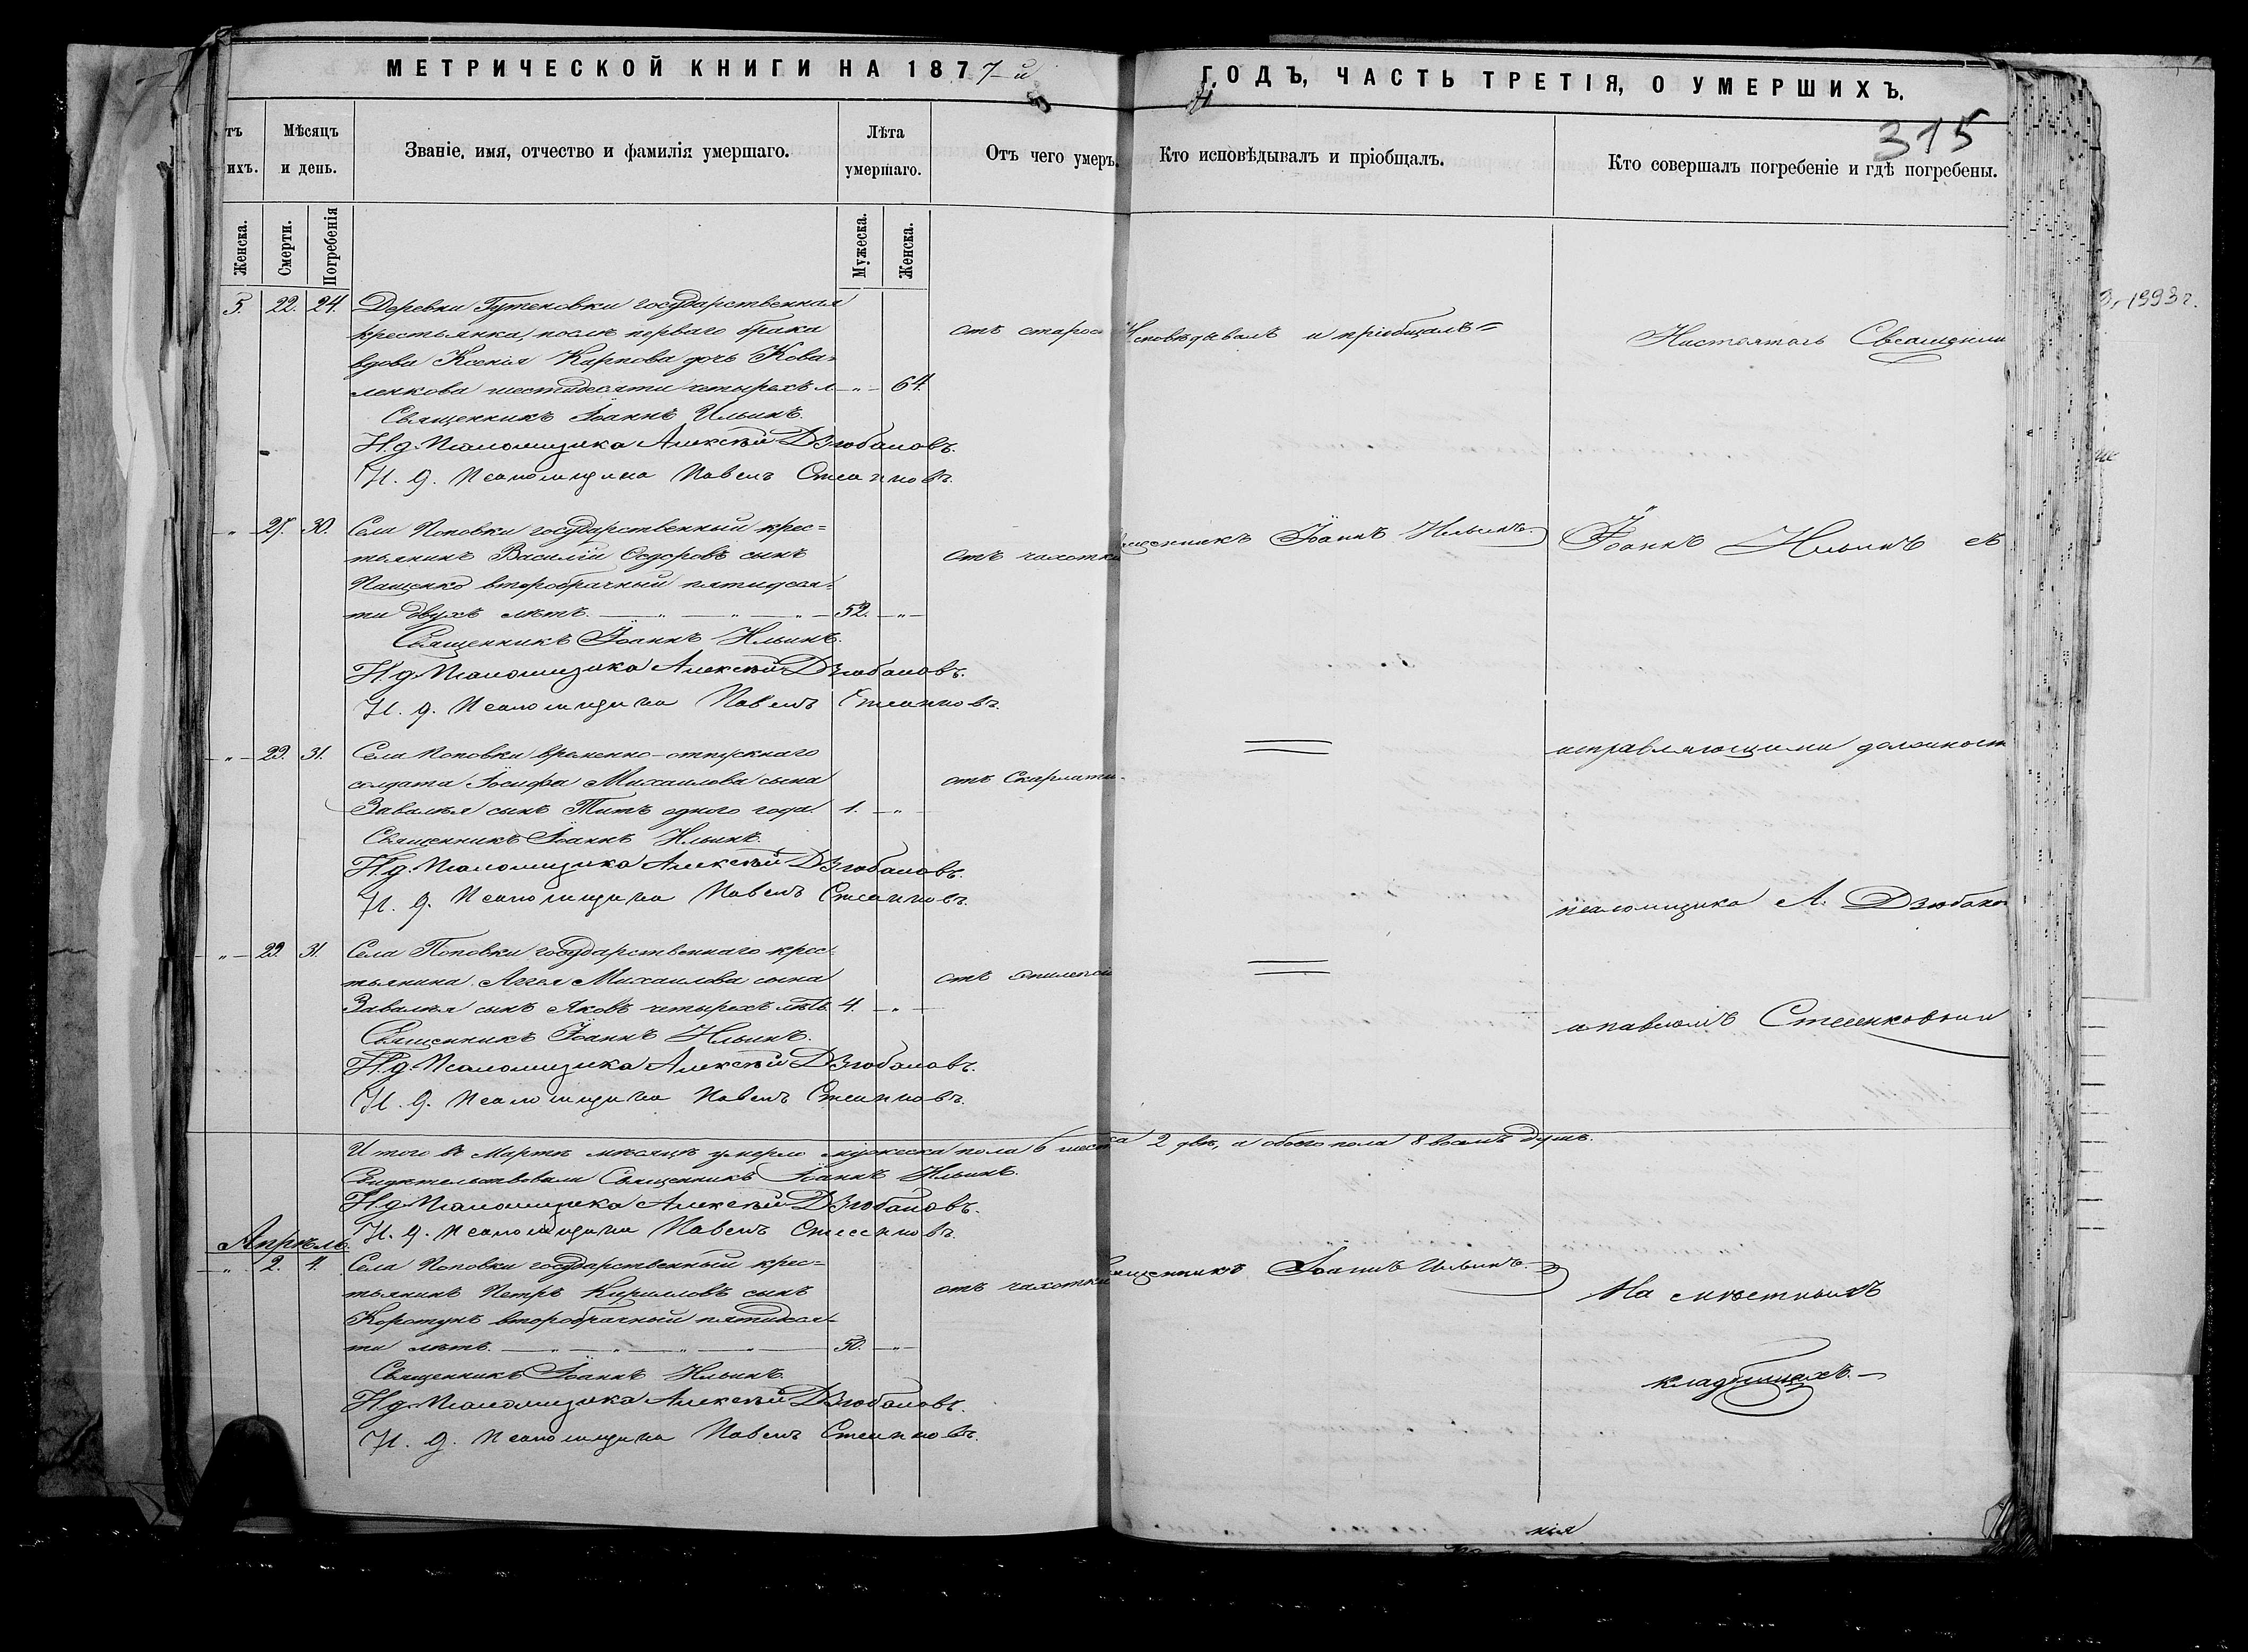 МЕТРИЧЕСКОЙ КНИГИ НА 1877-й
ГОДЪ, ЧАСТЬ ТРЕТІЯ, О УМЕРШИХЪ.
315
тъ
ихъ.
Мѣсяцъ
и день.
Званіе, имя, отчество и фамилія умершаго.
Лѣта
умершаго.
Отъ чего умеръ.
Кто исповѣдывалъ и пріобщалъ.
Кто совершалъ погребеніе и гдѣ погребены.
Женска.
Смерти.
Погребенія
Мужеска.
Женска.
5. 22. 24. Деревни государственная
крестьянка, послѣ перваго брака
вдова Ксенія Карпова дочь Кова=
ленкова шестидесяти четырехъ л — " — 64.
отъ старос
Исповѣдывалъ и пріобщалъ=
Настоятель Священни
Священникъ Іоаннъ Ильинъ.
И.д. Псаломщика Алексѣй Дзюбановъ.
И. д. Псаломщика Павелъ
— " — 27. 30. Села Поповки государственный крес=
тьянинъ Василій Ѳедоровъ сынъ
Пащенко второбрачный пятидеся=
ти двухъ лѣтъ. — " — " — " — 52. — " —
отъ чахотки
щенникъ Іоаннъ Ильинъ.
Іоаннъ Ильинъ съ
Священникъ Іоаннъ Ильинъ.
И.д. Псаломщика Алексѣй Дзюбановъ.
И. д. Псаломщика Павелъ
— " — 29. 31. Села Поповки временно-отпускнаго
солдата Іосифа Михаилова сына
Завалѣя сынъ Титъ одного года. 1. — " —
отъ Скарлати-
исправляющими должност
Священникъ Іоаннъ Ильинъ.
И.д. Псаломщика Алексѣй Дзюбановъ.
И. д. Псаломщика Павелъ
псаломщика А. Дзюбано
— " — 29. 31. Села Поповки государственнаго крес=
тьянина Михаилова сына
Завалѣя сынъ Яковъ четырехъ лѣтъ. 4. — " —
отъ эпилепсіи
Священникъ Іоаннъ Ильинъ.
И.д. Псаломщика Алексѣй Дзюбановъ.
И. д. Псаломщика Павелъ
и павломъ
Итого въ Мартѣ мѣсяцѣ умерло мужеска пола 6 шест 2 двѣ, а обоего пола 8 восемь душъ.
Свидѣтельствовали Священникъ Іоаннъ Ильинъ.
И.д. Псаломщика Алексѣй Дзюбановъ.
И. д. Псаломщика Павелъ
Апрѣль.
— " — 2. 4. Села Поповки государственный крес=
тьянинъ Петръ Кирилловъ сынъ
Коротунъ второбрачный пятидеся=
ти лѣтъ. — " — " — " — " — 50. — " —
отъ чахотки
вященникъ Іоаннъ Ильинъ.
На мѣстныхъ
кладбищахъ.—
Священникъ Іоаннъ Ильинъ.
И.д. Псаломщика Алексѣй Дзюбановъ.
И. д. Псаломщика Павелъ
нія
1993 г.